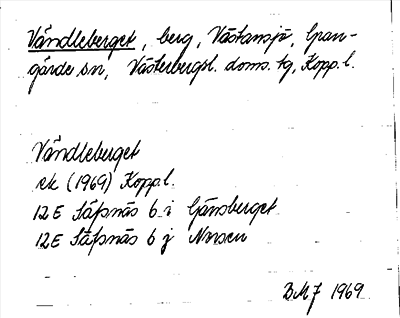 Vändleberget, berg, Västansjö, Gran-
gärde sn, Västerbergsl. doms. tg, Kopp. l.
Vändleberget
ek (1969) Kopp. l.
12E Säfsnäs 6 i Gänsberget
12E Säfsnäs 6 j Norsen
BMJ 1969